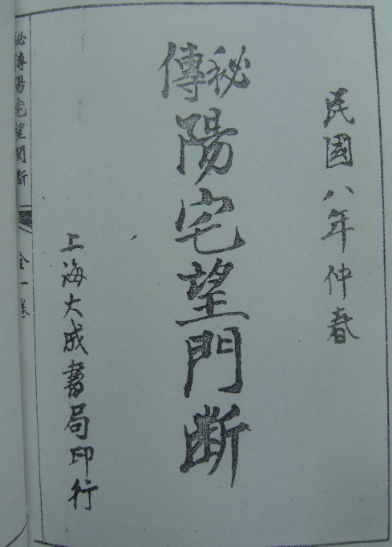 民國八年仲春
秘傳
陽宅望門斷
上海大成書局印行
秘傳陽宅望門断
全一卷